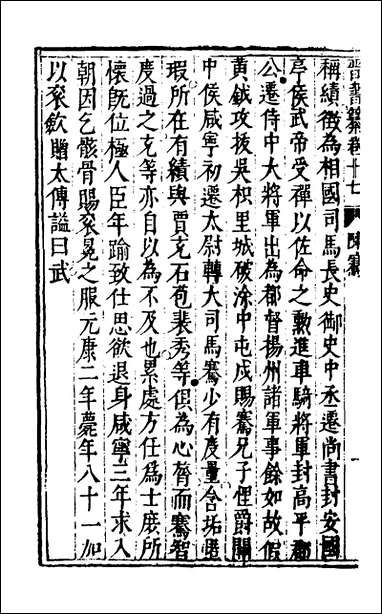 晋書纂卷十七 陳騫
稱績徵為相國司馬長史御史中丞遷尚書封安國
亭侯武帝受禪以佐命之勲進車騎將軍封高平郡
公遷侍中大將軍出為都督揚州諸軍事餘如故假
黄鉞攻拔吳枳里城破涂中屯戍賜騫兄子悝爵關
中侯咸寧初遷太尉轉大司馬騫少有度量含垢匿
瑕所在有績與賈充石苞裴秀等俱為心膂而騫智
度過之充等亦自以為不及也累處方任為士庶所
懷旣位極人臣年踰致仕思欲退身咸寧三年求入
朝因乞骸骨賜衮冕之服元康二年薨年八十一加
以衮斂贈太傅謚曰武